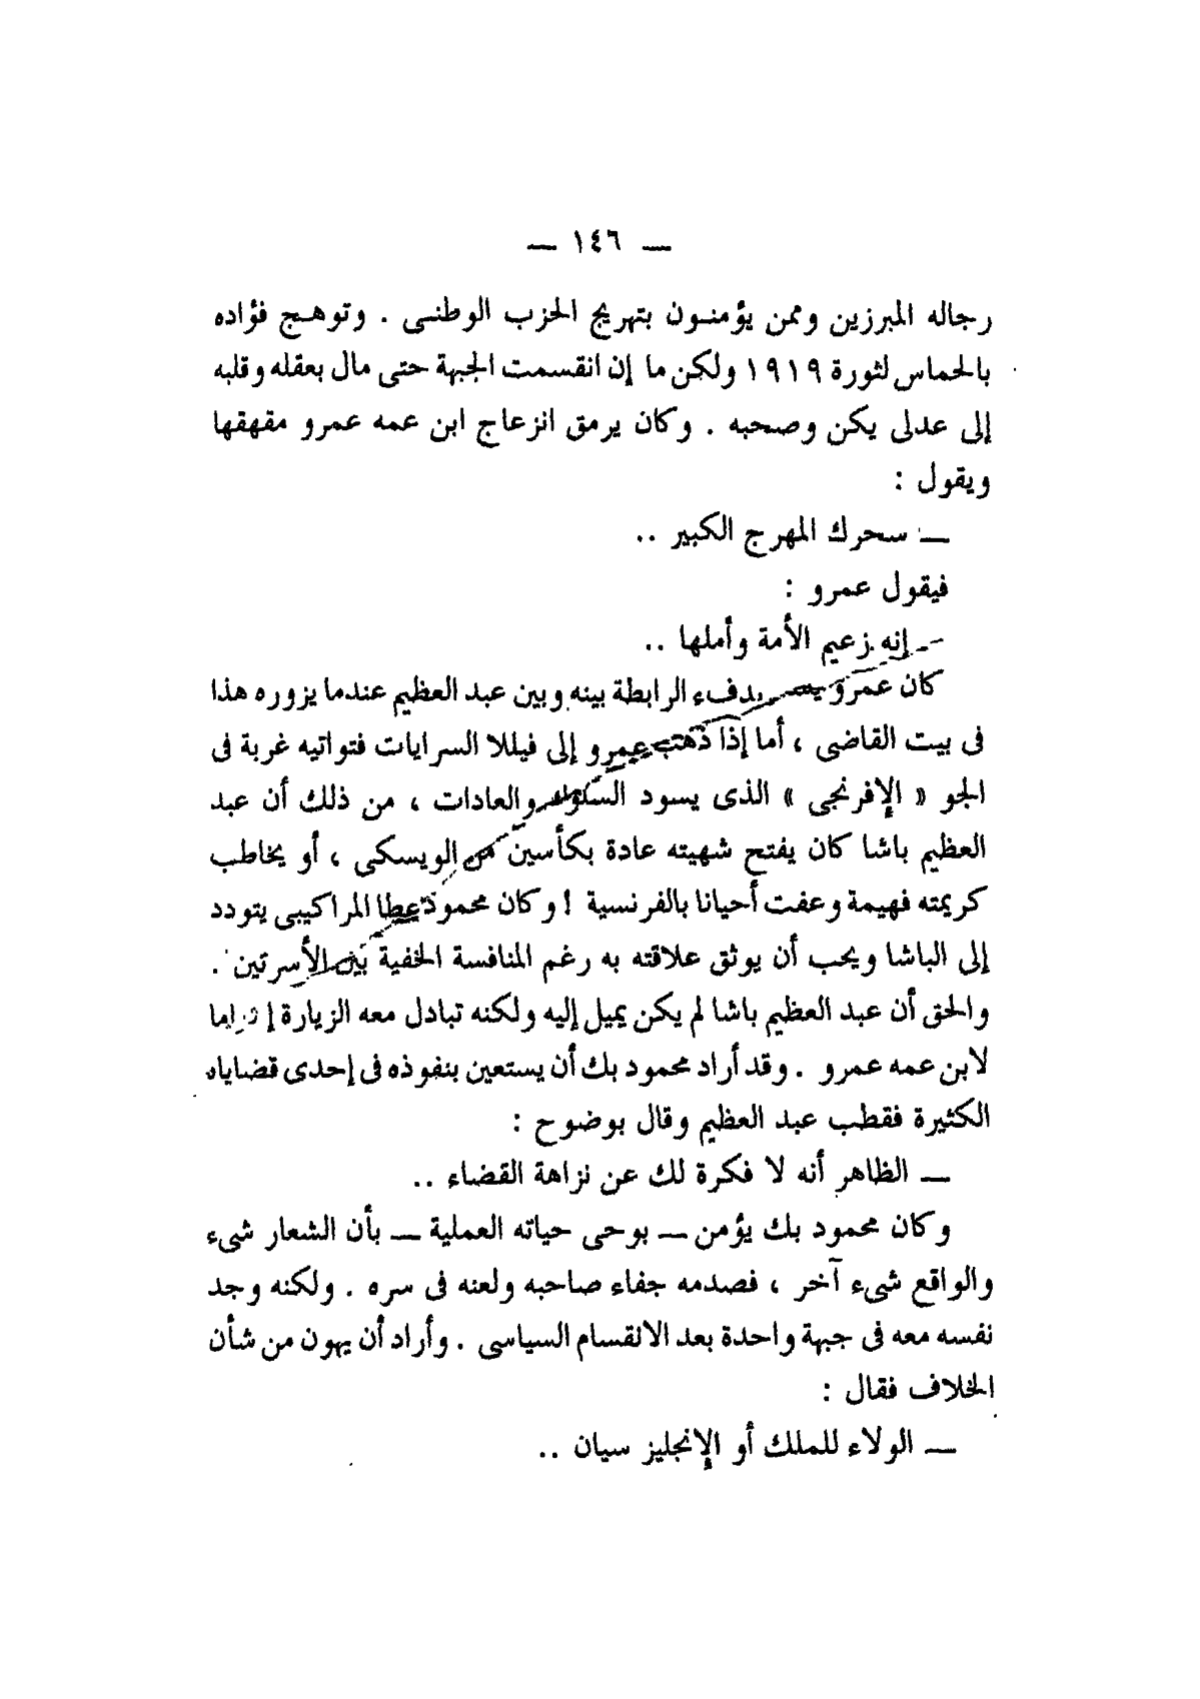 — ١٤٦ —
رجاله المبرزين وممن يؤمنون بتهريج الحزب الوطنى . وتوهج فؤاده
بالحماس لثورة ١٩١٩ ولكن ما إن انقسمت الجبهة حتى مال بعقله وقلبه
إلى عدلى يكن وصحبه . وكان يرمق انزعاج ابن عمه عمرو مقهقها
ويقول :
— سحرك المهرج الكبير ..
فيقول عمرو :
— إنه زعيم الأمة وأملها ..
كان عمرو يسعد بدفء الرابطة بينه وبين عبد العظيم عندما يزوره هذا
فى بيت القاضى ، أما إذا ذهب عمرو إلى فيللا السرايات فتواتيه غربة فى
الجو « الإفرنجى » الذى يسود السلوك والعادات ، من ذلك أن عبد
العظيم باشا كان يفتح شهيته عادة بكأسين من الويسكى ، أو يخاطب
كريمته فهيمة وعفت أحيانا بالفرنسية ! وكان محمود عطا المراكيبى يتودد
إلى الباشا ويحب أن يوثق علاقته به رغم المنافسة الخفية بين الأسرتين .
والحق أن عبد العظيم باشا لم يكن يميل إليه ولكنه تبادل معه الزيارة إكراما
لابن عمه عمرو . وقد أراد محمود بك أن يستعين بنفوذه فى إحدى قضاياه
الكثيرة فقطب عبد العظيم وقال بوضوح :
— الظاهر أنه لا فكرة لك عن نزاهة القضاء ..
وكان محمود بك يؤمن — بوحى حياته العملية — بأن الشعار شىء
والواقع شىء آخر ، فصدمه جفاء صاحبه ولعنه فى سره . ولكنه وجد
نفسه معه فى جبهة واحدة بعد الانقسام السياسى . وأراد أن يهون من شأن
الخلاف فقال :
— الولاء للملك أو الإنجليز سيان ..